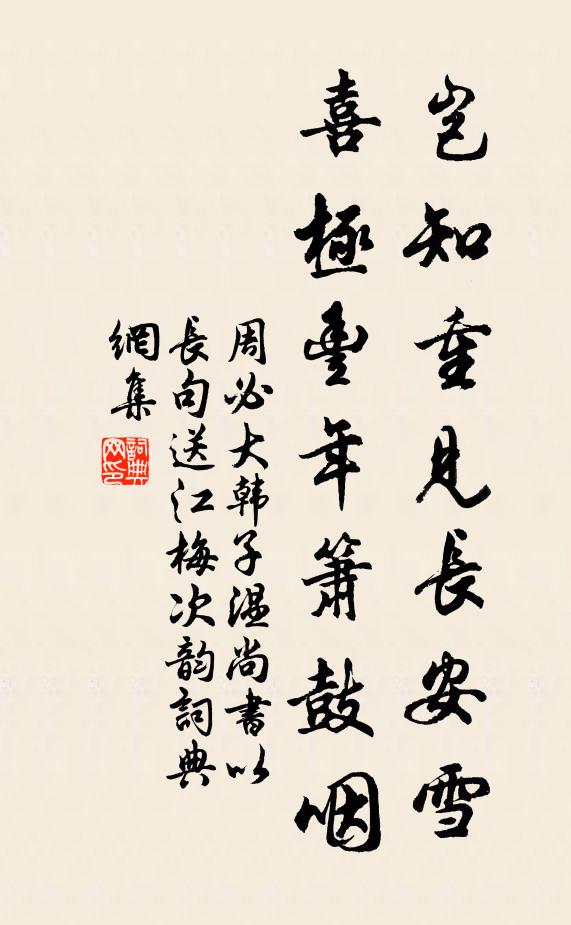 岂知重見長安雪
喜極豊年簫鼓咽
周必大韩子温尚書以
長句送江梅次韵詞典
網集
詞典
网印